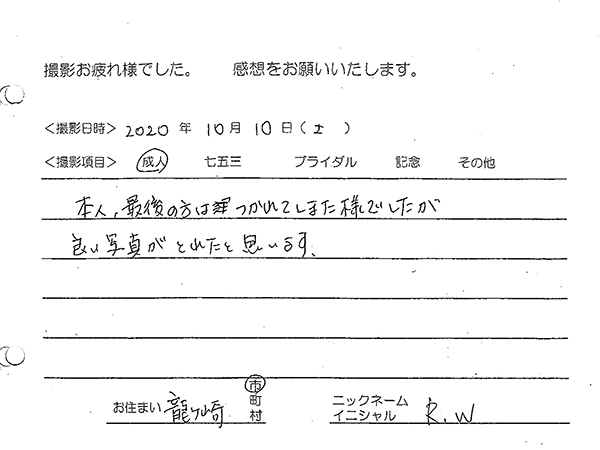 撮影お疲れ様でした。 感想をお願いいたします。
<撮影日時> 2020 年 10月 10日(土 )
<撮影項目> 成人 七五三 ブライダル 記念 その他
本人、最後の方は つかれてしまた様でしたが
良い写真がとれたと思います。
お住まい 龍ヶ崎 市町村 ニックネーム イニシャル R.W